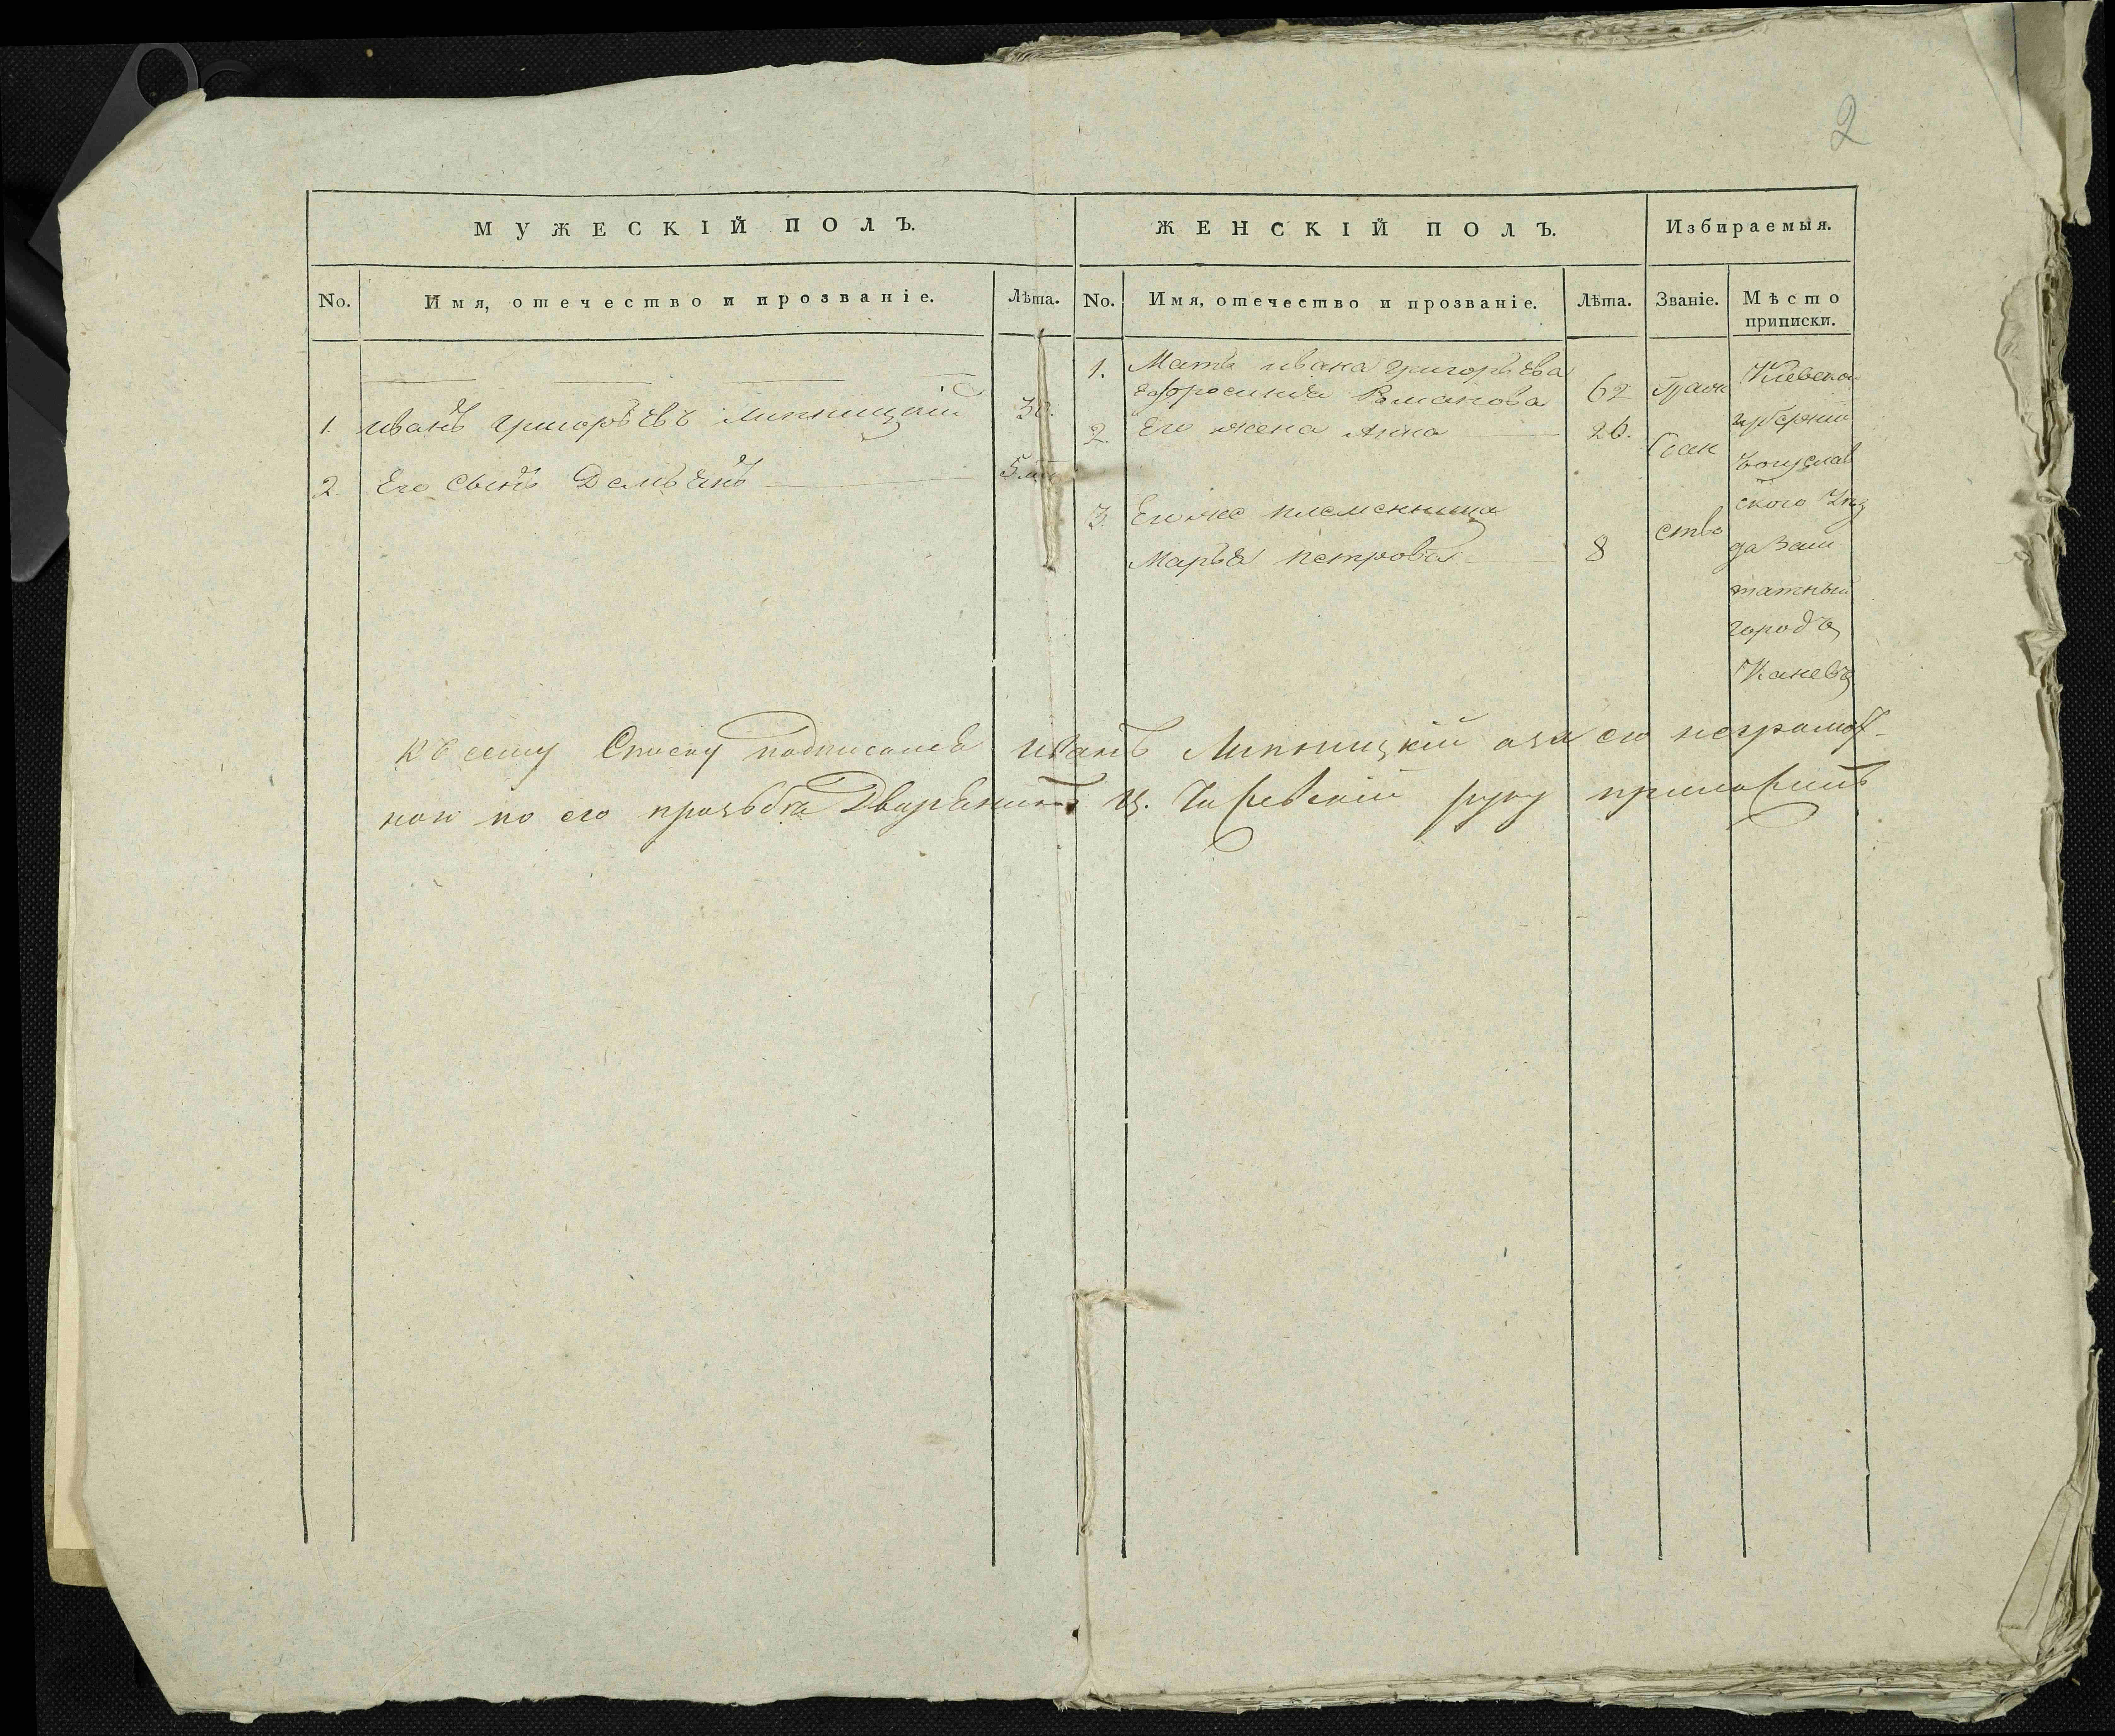 2
МУЖЕСКІЙ ПОЛЪ.
ЖЕНСКІЙ ПОЛЪ.
Избираемыя.
No.
Имя, отечество и прозваніе.
Лѣта.
No.
Имя, отечество и прозваніе.
Лѣта.
Званіе.
Мѣсто
приписки.
1. Иванъ Григорьевъ Липницкій 30.
2. Его сынъ Демьянъ 5.
1. Мать Ивана Григорьева
Ефросинья Романова 62
2. Его жена Анна 26.
3. Его же племенница
Марья Петрова 8
Граж
дан
ство
Кіевской
губерніи
Богуслав
ского Уѣз
да Заш
татный
городъ
Каневъ
Къ сему Списку подписался Иванъ Липницкій а за его неграмот-
ного по его прозьбѣ Дворянинъ руку приложилъ